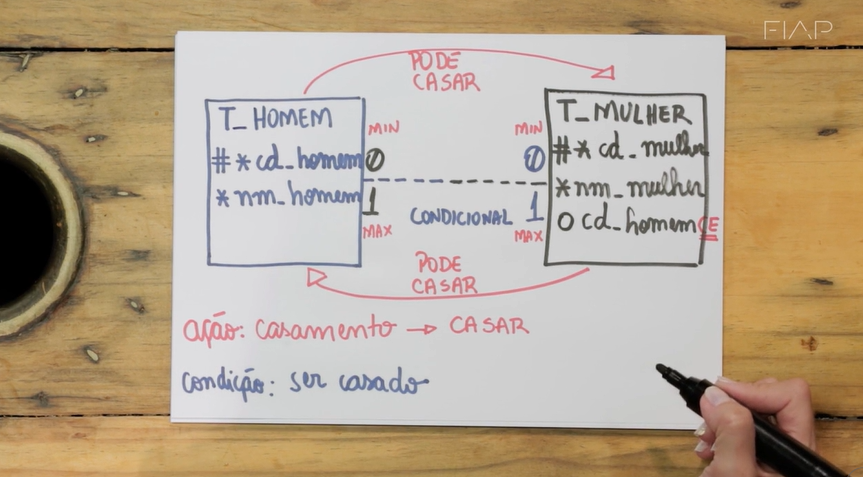 FIAP
PODE
CASAR
T_HOMEM
# * cd_homem
* nm_homem
MIN
0
1
MAX
CONDICIONAL
MIN
0
1
MAX
T_MULHER
# * cd_mulher
* nm_mulher
O cd_homem CE
PODE
CASAR
ação: casamento → CASAR
condição: ser casado